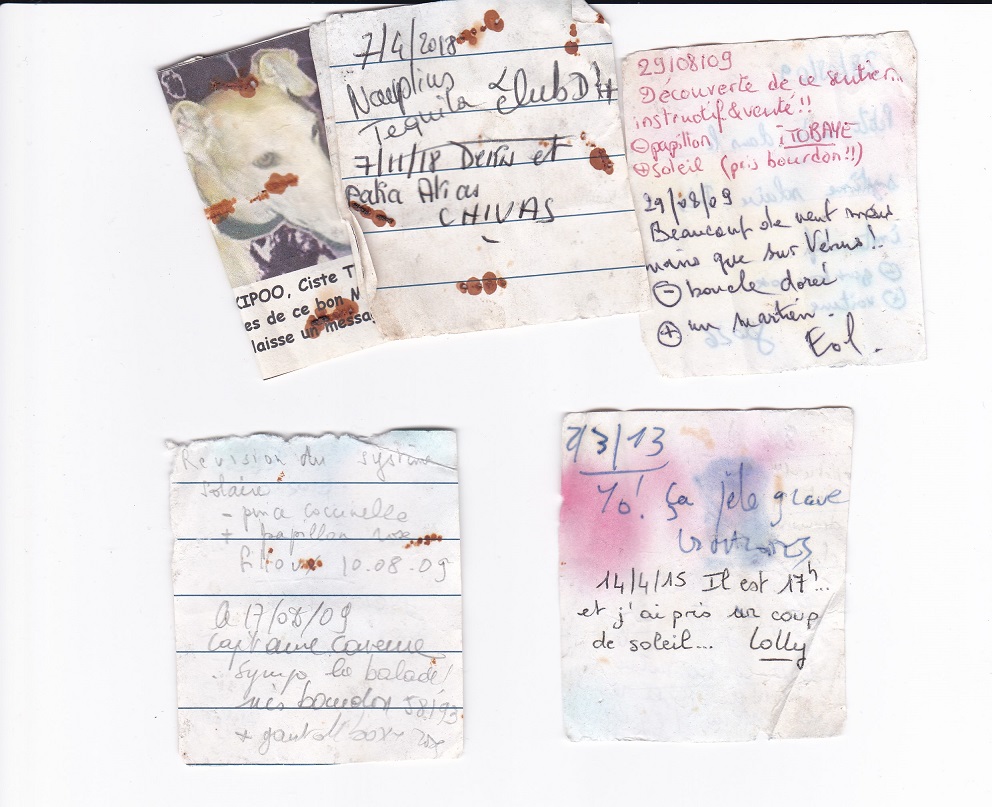 7/4/2018
Nauplius
Tequila
7/11/18 et
CHIVAS
KIPOO, Ciste T
es de ce bon N
laisse un messa
29/08/09
Découverte de ce sentier...
instructif & venté!!
⊖ papillon iTOBAYE
⊕ soleil (pris bourdon!!)
29/08/09
Beaucoup de vent mais
moins que sur Vénus!
⊖ boucle dorée
⊕ un martien.
Eol.
Révision du système
solaire
- pince coccinelle
+ papillon rose
10.08.09
Le 17/08/09
Capitaine Caverne
Sympa la balade!
bourdon 58/93
+ gant de boxe
2/3/13
Yo! Ça jèle grave
14/4/15 Il est 17h...
et j'ai pris un coup
de soleil... Lolly